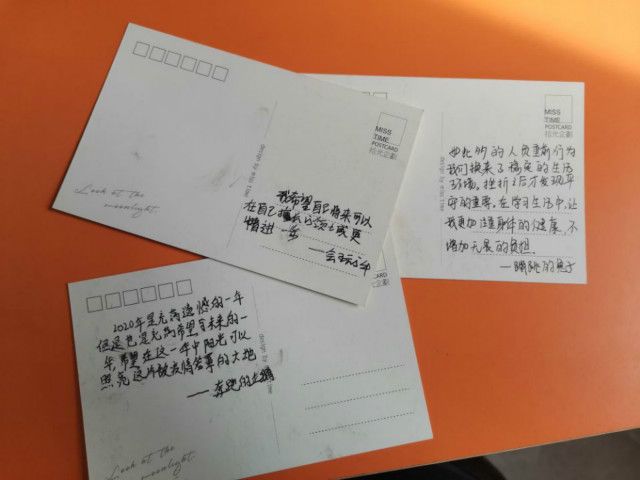 MISS
TIME
POSTCARD
拾光企劃
design by miss time
Look at the
moonlight.
我希望自己将来可以
在自己擅长的领域更
精进一步
MISS
TIME
POSTCARD
拾光企劃
design by miss time
的人员重新行为
我们换来了稳定的生活
环境。挫折之后才发现平
安的重要,在学习生活中,让
我更加注重身体的健康,不
增加无畏的负担.
——跳跳的兔子
拾光企劃
design by miss time
2020年是充满遗憾的一年
但是也是充满希望与未来的一
年,希望在这一年中阳光可以
照亮这片被疫情笼罩的大地
——奔跑的
Look at the
moonlight.